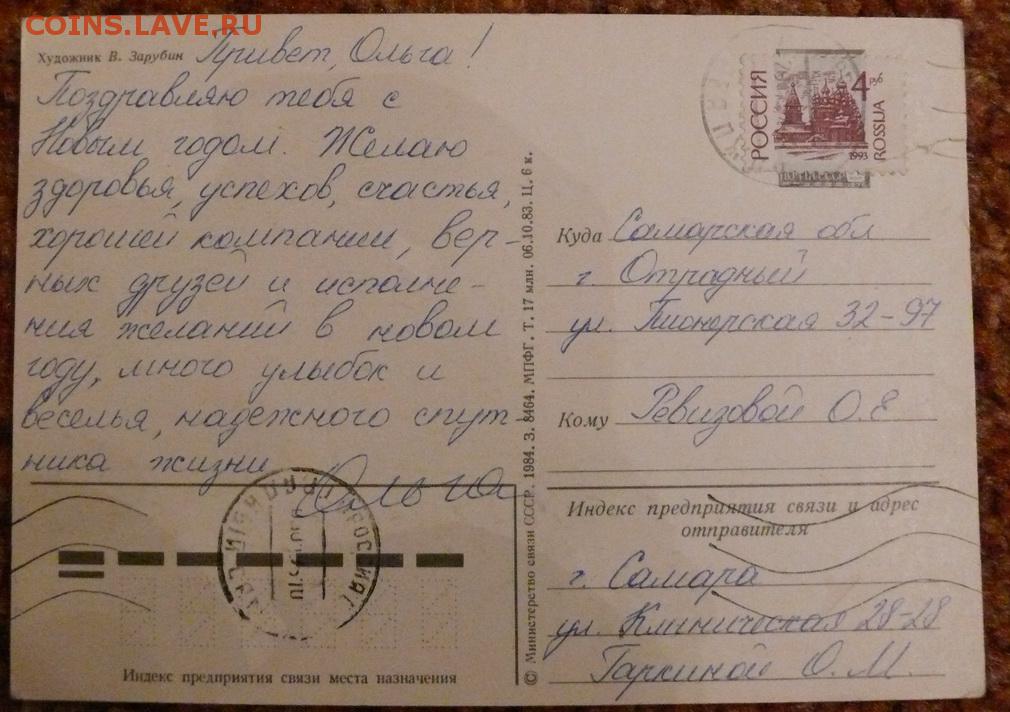 COINS.LAVE.RU
Художник В. Зарубин
Привет, Ольга!
Поздравляю тебя с
Новым годом. Желаю
здоровья, успехов, счастья,
хорошей компании, вер-
ных друзей и исполне-
ния желаний в новом
году, много улыбок и
веселья, надежного спут-
ника жизни
Ольга
Индекс предприятия связи места назначения
© Министерство связи СССР. 1984. З. 8464. МПФГ. Т. 17 млн. 06.10.83. Ц. 6 к.
РОССИЯ
4 руб
ROSSIJA
1993
Куда Самарская обл
г. Отрадный
ул. Пионерская 32-97
Кому Ревизовой О.Е
Индекс предприятия связи и адрес
отправителя
г. Самара
ул. Клиническая 28-28
Гаркиной О. М.